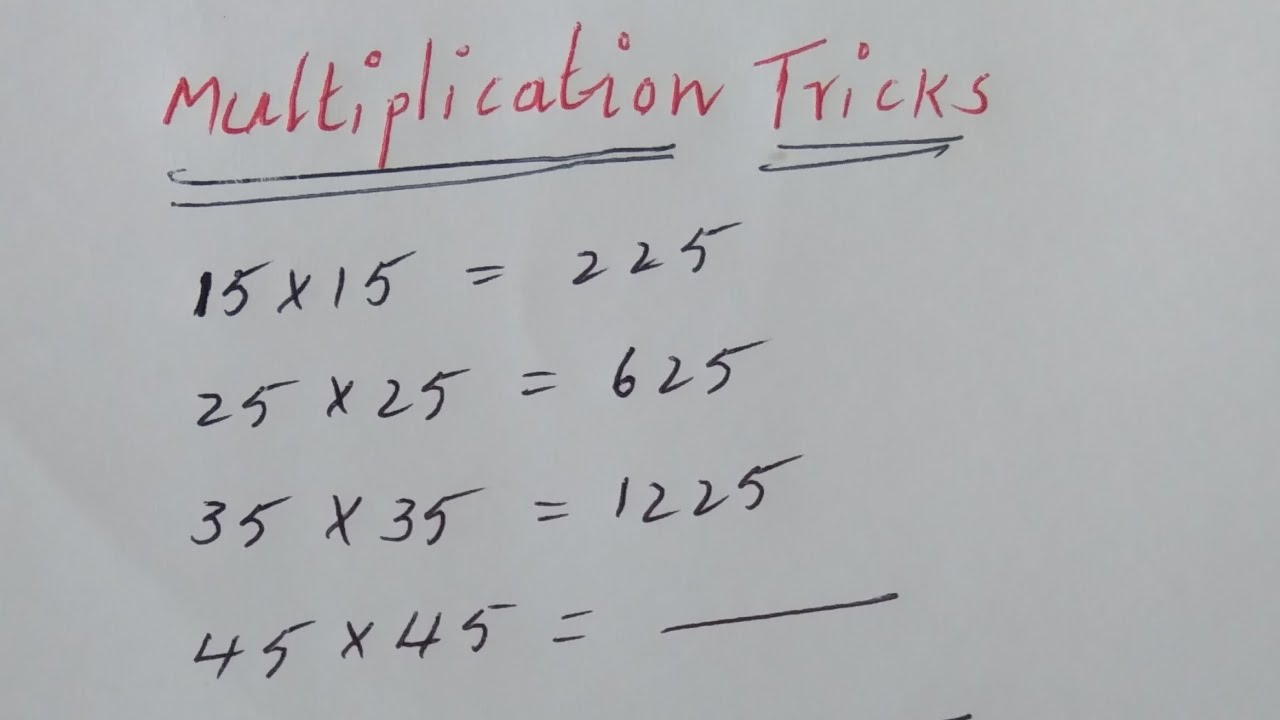 Multiplication Tricks
15 x 15 = 225
25 x 25 = 625
35 x 35 = 1225
45 x 45 = ___